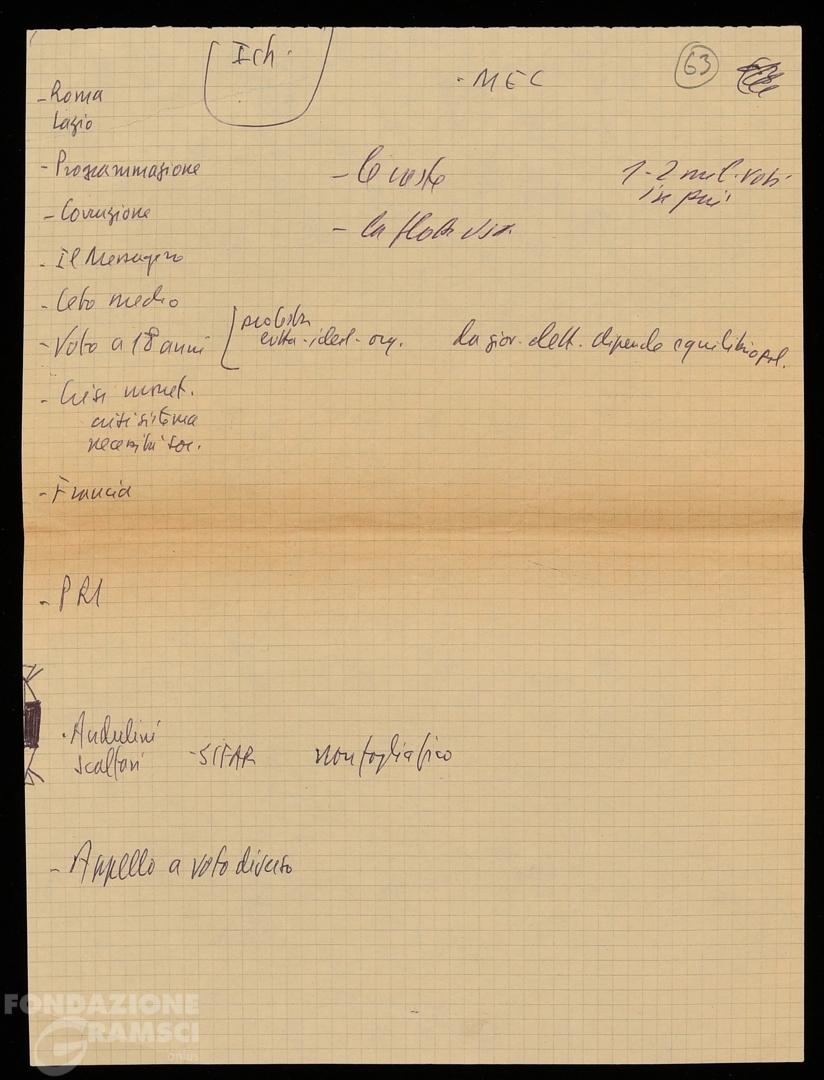 Ich.
63
- MEC
- Roma
Lazio
- Programmazione
- le
1-2 mil. voti
in più
- Corruzione
- la flotta
- Il Messagero
- Ceto medio
- Voto a 18 anni
protesta
- ideal - org.
da giov. dell. dipende equilibrio pol.
- Crisi monet.
crisi sistema
necessità soc.
- Francia
- PRI
- Anderlini
Scalfari
- SIFAR
non foglia fico
- Appello a voto diverso
FONDAZIONE
GRAMSCI
onlus